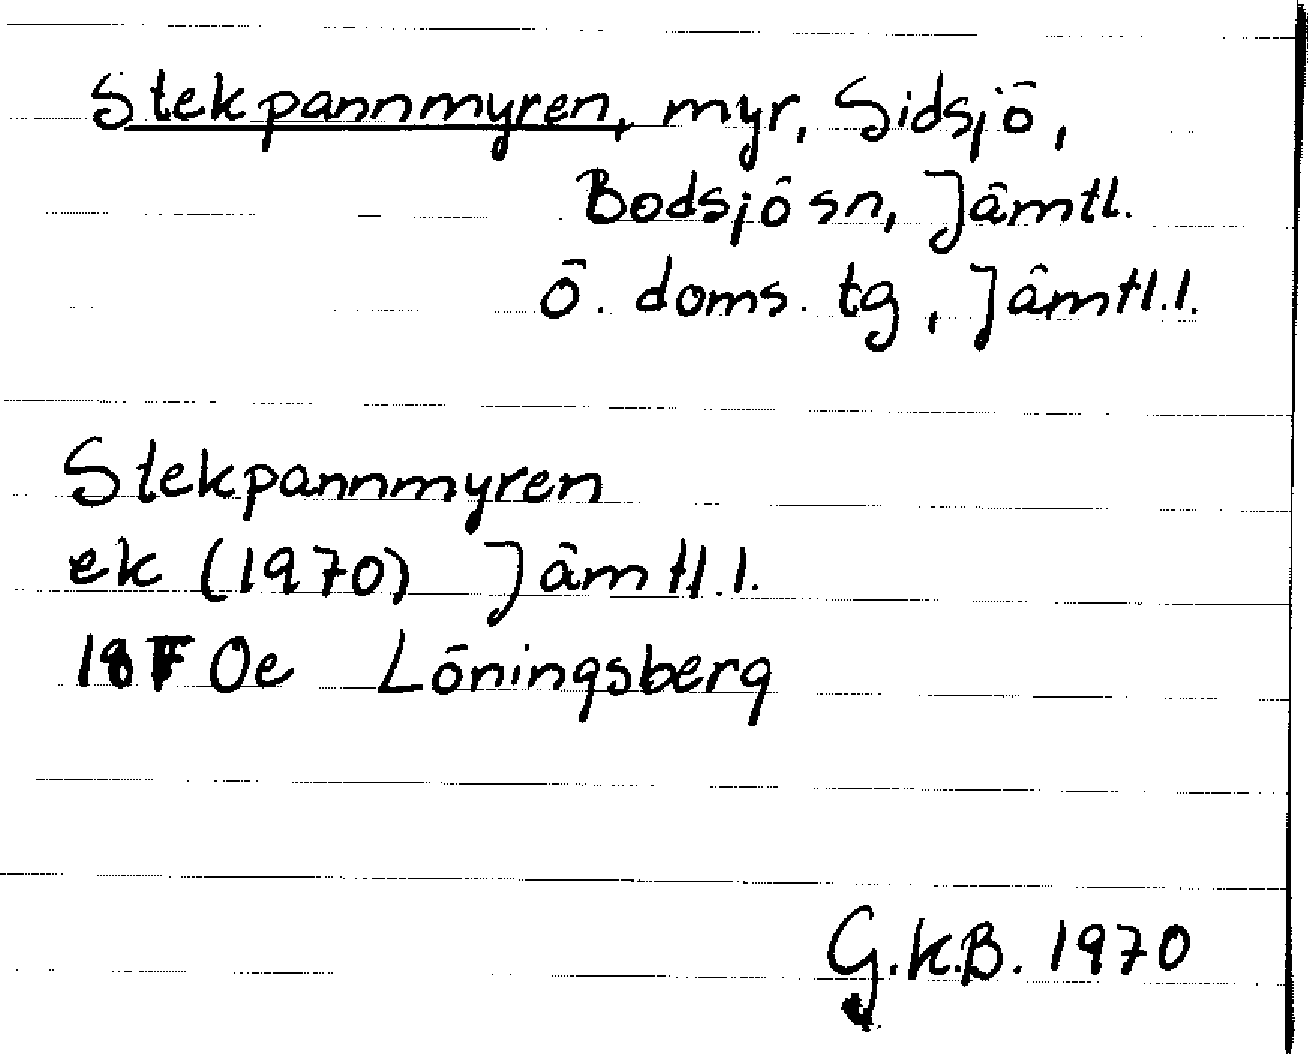 Stekpannmyren, myr, Sidsjö,
Bodsjö sn, Jämtl.
Ö. doms. tg, Jämtl.l.
Stekpannmyren
ek (1970) Jämtl.l.
18F 0e Löningsberg
G.K.B. 1970